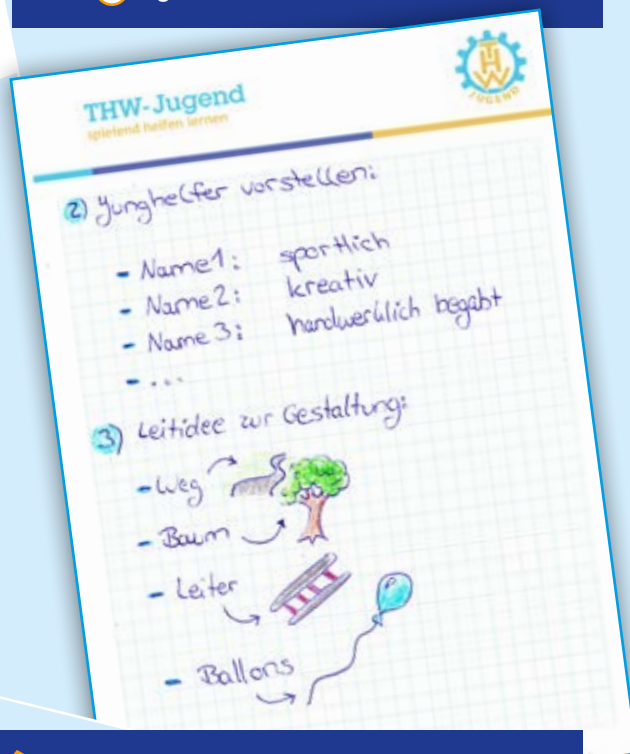 THW-Jugend
spielend helfen lernen
THW
JUGEND
2) Junghelfer vorstellen:
- Name1: sportlich
- Name2: kreativ
- Name 3: handwerklich begabt
- ...
3) Leitidee zur Gestaltung:
- Weg
- Baum
- Leiter
- Ballons